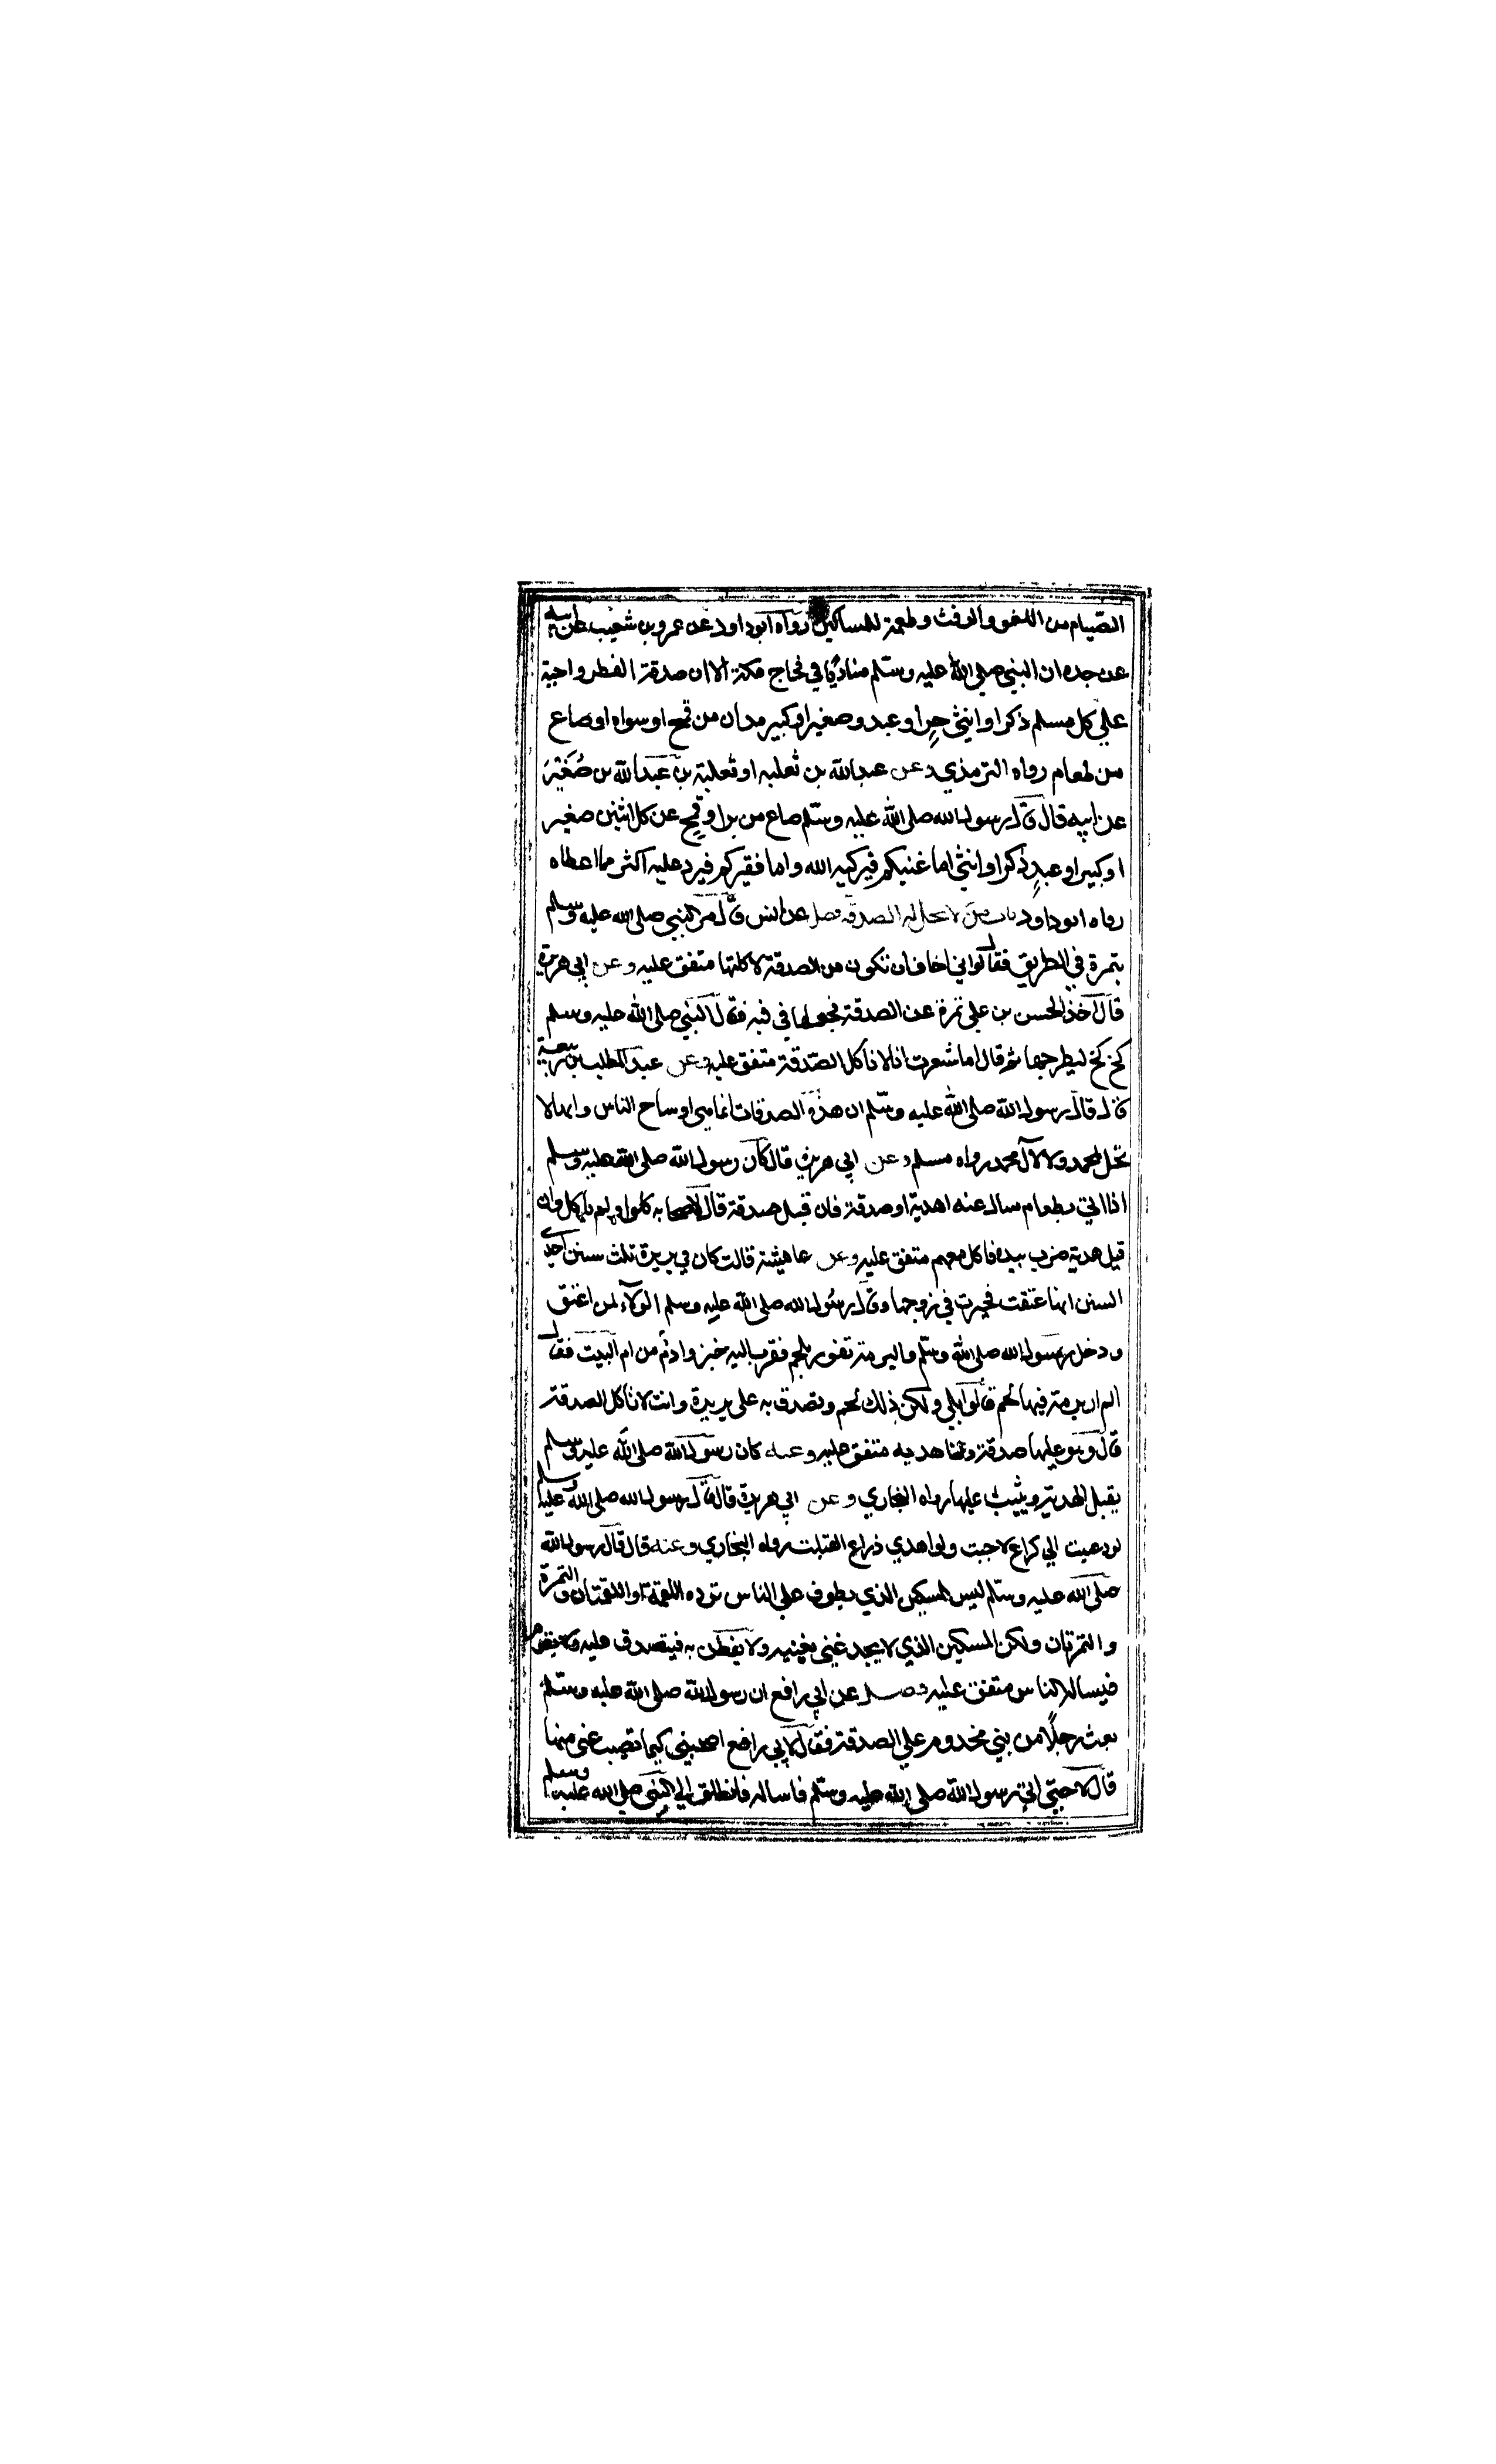 الصيام من اللغو والرفث وطعمة للمساكين رواه ابوداود عن عمرو بن شعيب عن ابيه
عن جده ان النبي صلي الله عليه وسلم مناديا في فجاج مكة الا ان صدقة الفطر واجبة
علي كل مسلم ذكر او انثي حر او عبد وصغير او كبير مدان من قمح او سواه او صاع
من طعام رواه الترمذي وعن عبد الله بن ثعلبه او ثعلبة بن عبد الله بن صُغَير
عن ابيه قال قال رسول الله صلي الله عليه وسلم صاع من بر او قمح عن كل اثنين صغير
او كبير او عبدٍ ذكر او انثي اما غنيكم فيزكيه الله واما فقيركم فيرد عليه اكثر مما اعطاه
رواه ابوداود باب من لا تحل له الصدقة فصل عن انس قال مر النبي صلي الله عليه وسلم
بتمرة في الطريق فقال لو اني اخاف ان تكون من الصدقة لاكلتها متفق عليه وعن ابي هريرة
قال اخذ الحسن بن علي تمرة عن الصدقة فجعلها في فيه فقال النبي صلي الله عليه وسلم
كخ كخ ليطرحها ثم قال اما شعرت انا لا ناكل الصدقة متفق عليه وعن عبد المطلب بن ربيعة
قال قال رسول الله صلي الله عليه وسلم ان هذه الصدقات انما هي اوساح الناس وانها لا
تحل لمحمد ولا لآل محمد رواه مسلم وعن ابي هريرة قال كان رسول الله صلي الله عليه وسلم
اذا اتي بطعام سال عنه اهدية او صدقة فان قيل صدقة قال لاصحابه كلوا ولم ياكل وان
قيل هدية ضرب بيده فاكل معهم متفق عليه وعن عايشة قالت كان في بريرة ثلث سنن احدي
السنن انها عتقت فخيرت في زوجها وقال رسول الله صلي الله عليه وسلم الولآء لمن اعتق
ودخل رسول الله صلي الله وسلم والبرمة تفور بلحم فقرب اليه خبز وادم من ام البيت فقال
الم ار برمة فيها لحم قالوا بلي ولكن ذلك لحم وتصدق به علي بريرة وانت لا تاكل الصدقة
قال وهو عليها صدقة ولنا هديه متفق عليه وعنه كان رسول الله صلي الله عليه وسلم
يقبل الهدية ويثيب عليها رواه البخاري وعن ابي هريرة قال قال رسول الله صلي الله عليه وسلم
لو دعيت الي كراع لاجبت ولو اهدي ذراع لقبلت رواه البخاري وعنه قال قال رسول الله
صلي الله عليه وسلم ليس المسكين الذي يطوف علي الناس ترده اللقمة او اللقمتان والتمرة
والتمرتان ولكن المسكين الذي لا يجد غني يغنيه ولا يفطن به فيتصدق عليه ولا يقوم
فيسال الناس متفق عليه فصل عن ابي رافع ان رسول الله صلي الله عليه وسلم
بعث رجلًا من بني مخدوم علي الصدقة فقال لابي رافع اصحبني كيما تصيب عني منها
قال لا حتي اتي رسول الله صلي الله عليه وسلم فاساله فانطلق الي النبي صلي الله عليه وسلم